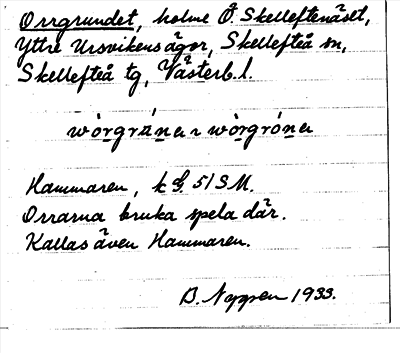 Orrgrundet, holme Ö. Skelleftenäset,
Yttre Ursvikens ägor, Skellefteå sn,
Skellefteå tg, Västerb. l.
Hammaren, k G. 51 S.M.
Orrarna bruka spela där.
Kallas även Hammaren.
B. Nygren 1933.